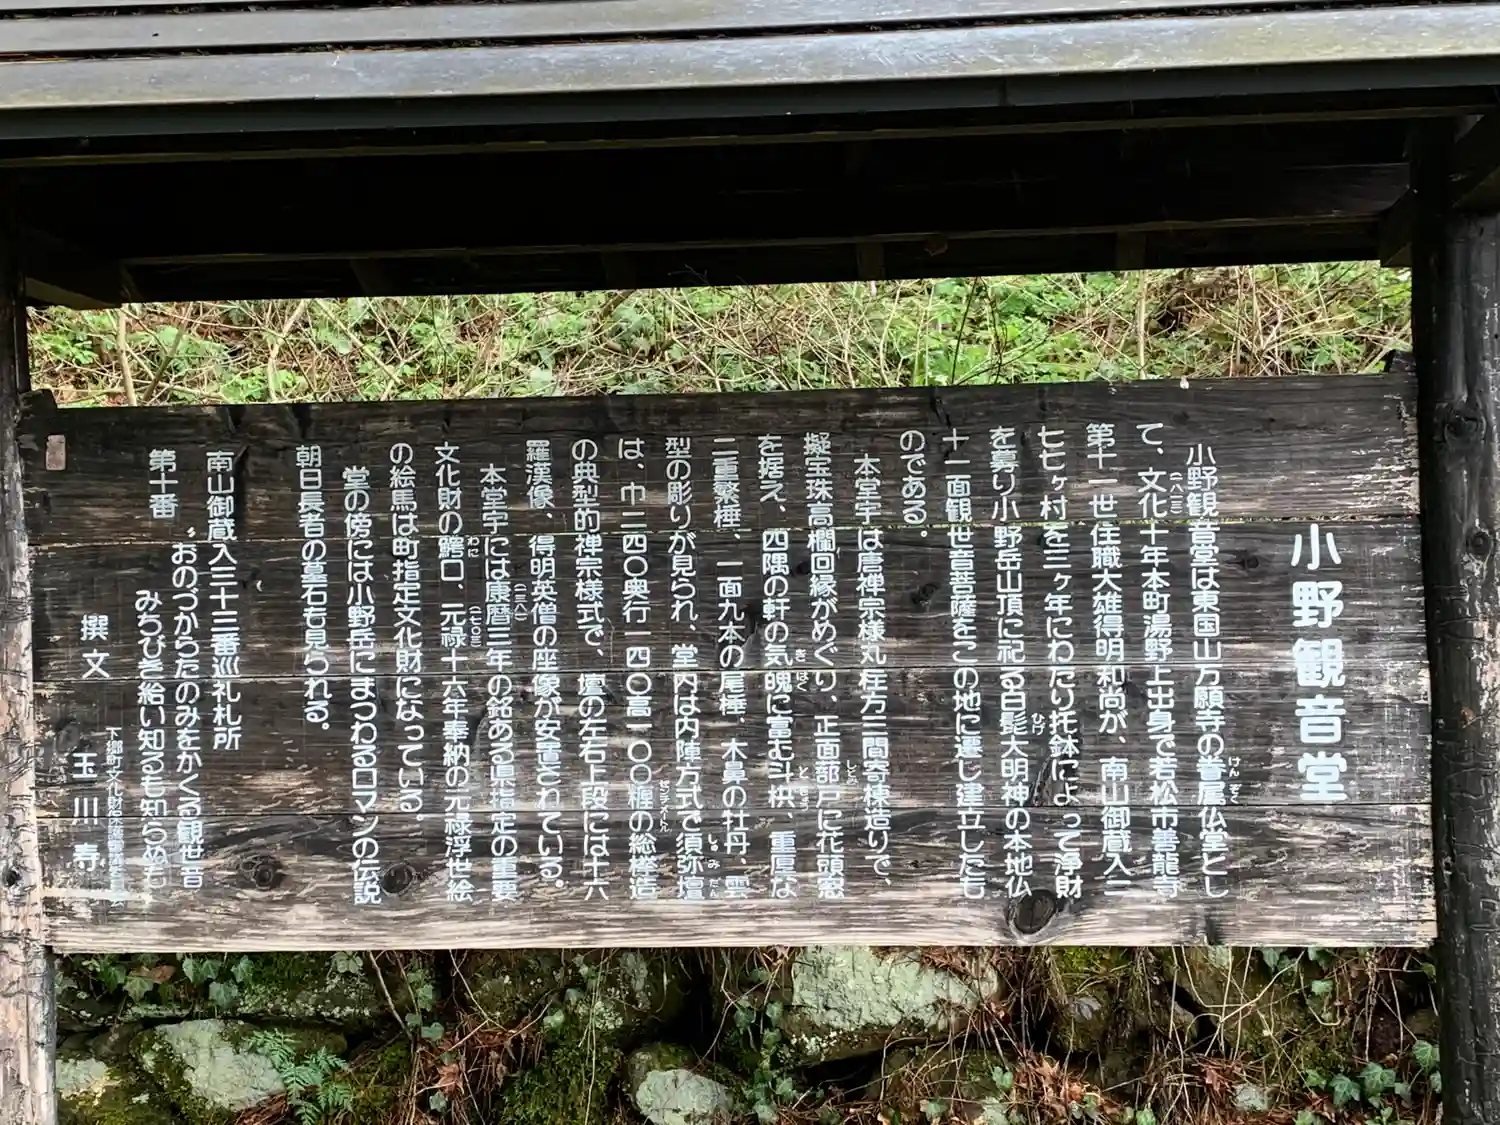 小野観音堂
小野観音堂は東国山万願寺の眷属仏堂とし
て、文化十年本町湯野上出身で若松市善龍寺
第十一世住職大雄得明和尚が、南山御蔵入二
七七ヶ村を三ヶ年にわたり托鉢によって浄財
を募り小野岳山頂に祀る白髭大明神の本地仏
十一面観世音菩薩をこの地に遷し建立したも
のである。
本堂宇は唐禅宗様丸柱方三間寄棟造りで、
擬宝珠高欄回縁がめぐり、正面蔀戸に花頭窓
を据え、四隅の軒の気魄に富む斗栱、重厚な
二重繁棰、一面九本の尾棰、木鼻の牡丹、雲
型の彫りが見られ、堂内は内陣方式で須弥壇
は、巾二四〇奥行一四〇高一〇〇糎の総欅造
の典型的禅宗様式で、壇の左右上段には十六
羅漢像、得明英僧の座像が安置されている。
本堂宇には康暦三年の銘ある県指定の重要
文化財の鰐口、元禄十六年奉納の元禄浮世絵
の絵馬は町指定文化財になっている。
堂の傍には小野岳にまつわるロマンの伝説
朝日長者の墓石も見られる。
南山御蔵入三十三番巡礼札所
第十番
〝おのづからたのみをかくる観世音
みちびき給い知るも知らぬも
撰文 玉川寿